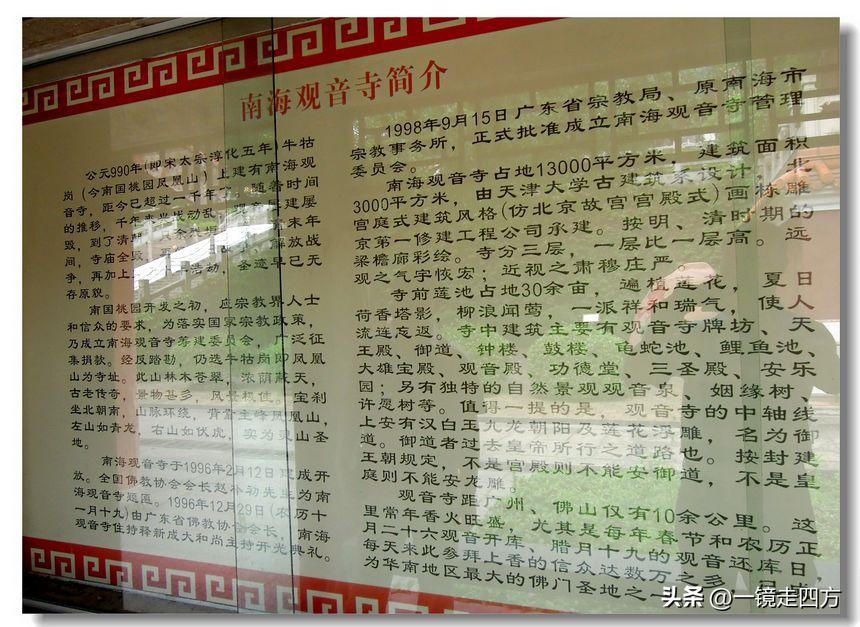 南海观音寺简介
公元990年(即宋太宗淳化五年)牛牯
岗(今南国桃园凤凰山)上建有南海观
音寺，距今已超过一千年。随着时间
的推移，千年来兴战动乱，建屡
毁，到了清末年
间，寺庙全解放战
争，再加上活动，圣迹早已无
存原貌。
南国桃园开发之初，应宗教界人士
和信众的要求，为落实国家宗教政策，
乃成立南海观音寺筹建委员会，广泛征
集捐款。经反复踏勘，仍选牛牯岗即凤凰
山为寺址。此山林木苍翠，浓荫蔽天，
古老传奇，景物甚多，风景极佳。宝刹
坐北朝南，山脉环绕，背靠主峰凤凰山，
左山如青龙，右山如伏虎，实为灵山圣
地。
南海观音寺于1996年2月12日建成开
放。全国佛教协会会长赵朴初先生为南
海观音寺题匾。1996年12月29日(农历十
一月十九)由广东省佛教协会会长，南海
观音寺住持释新成大和尚主持开光典礼。
1998年9月15日广东省宗教局、原南海市
宗教事务所，正式批准成立南海观音寺管理
委员会。
南海观音寺占地13000平方米，建筑面积
3000平方米，由天津大学古建筑系设计，北
京第一修建工程公司承建。按明、清时期的
宫庭式建筑风格(仿北京故宫宫殿式)画栋雕
梁檐廊彩绘。寺分三层，一层比一层高。远
观之气宇恢宏；近视之肃穆庄严。
寺前莲池占地30余亩，遍植莲花，夏日
荷香塔影，柳浪闻莺，一派祥和瑞气，使人
流连忘返。寺中建筑主要有观音寺牌坊、天
王殿、御道、钟楼、鼓楼、龟蛇池、鲤鱼池、
大雄宝殿、观音殿、功德堂、三圣殿、安乐
园；另有独特的自然景观观音泉、姻缘树、
许愿树等。值得一提的是，观音寺的中轴线
上安有汉白玉九龙朝阳及莲花浮雕，名为御
道。御道者过去皇帝所行之道路也。按封建
王朝规定，不是宫殿则不能安御道，不是皇
庭则不能安龙雕。
观音寺距广州、佛山仅有10余公里。这
里常年香火旺盛，尤其是每年春节和农历正
月二十六观音开库、腊月十九的观音还库日，
每天来此参拜上香的信众达数万之多，
为华南地区最大的佛门圣地之一
头条 @一镜走四方